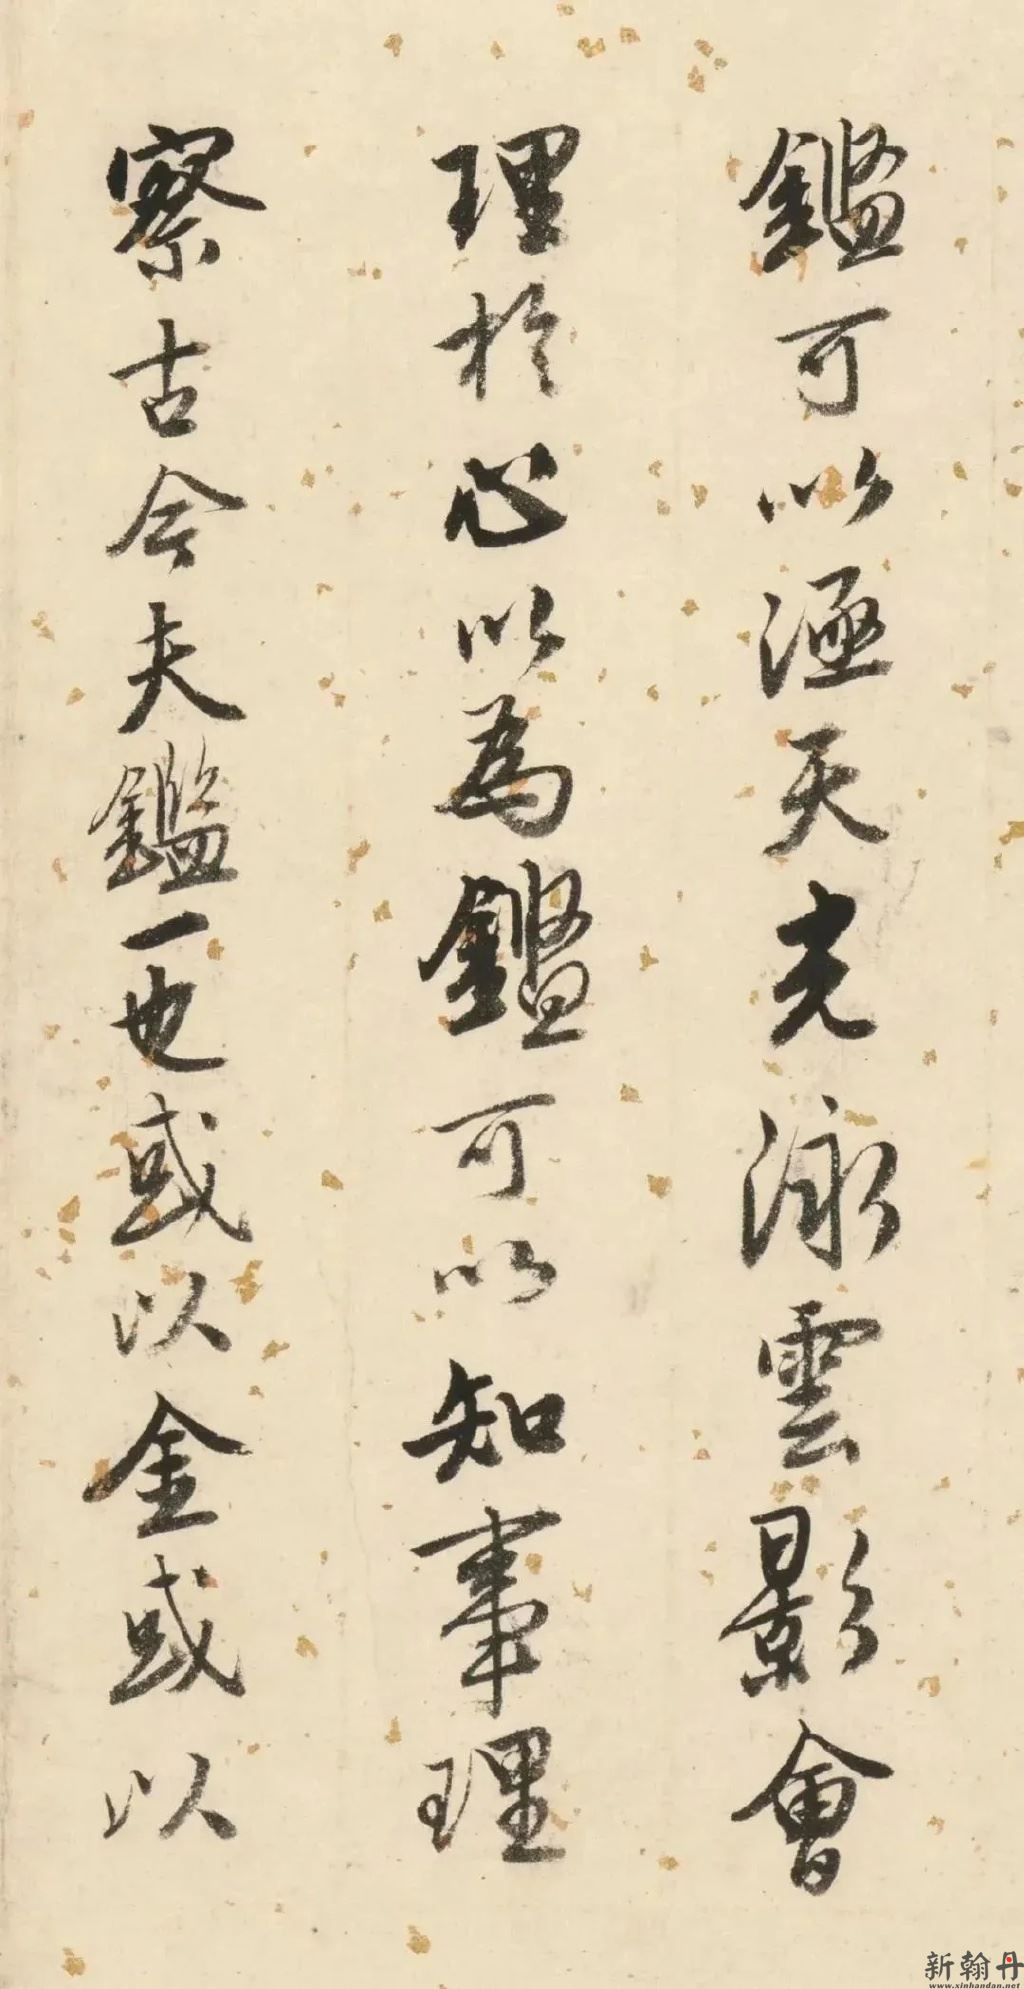 鑑可以涵天光泳雲影會
理於心以為鑑可以知事理
察古今夫鑑一也或以金或以
新翰丹
www.xinhandan.net